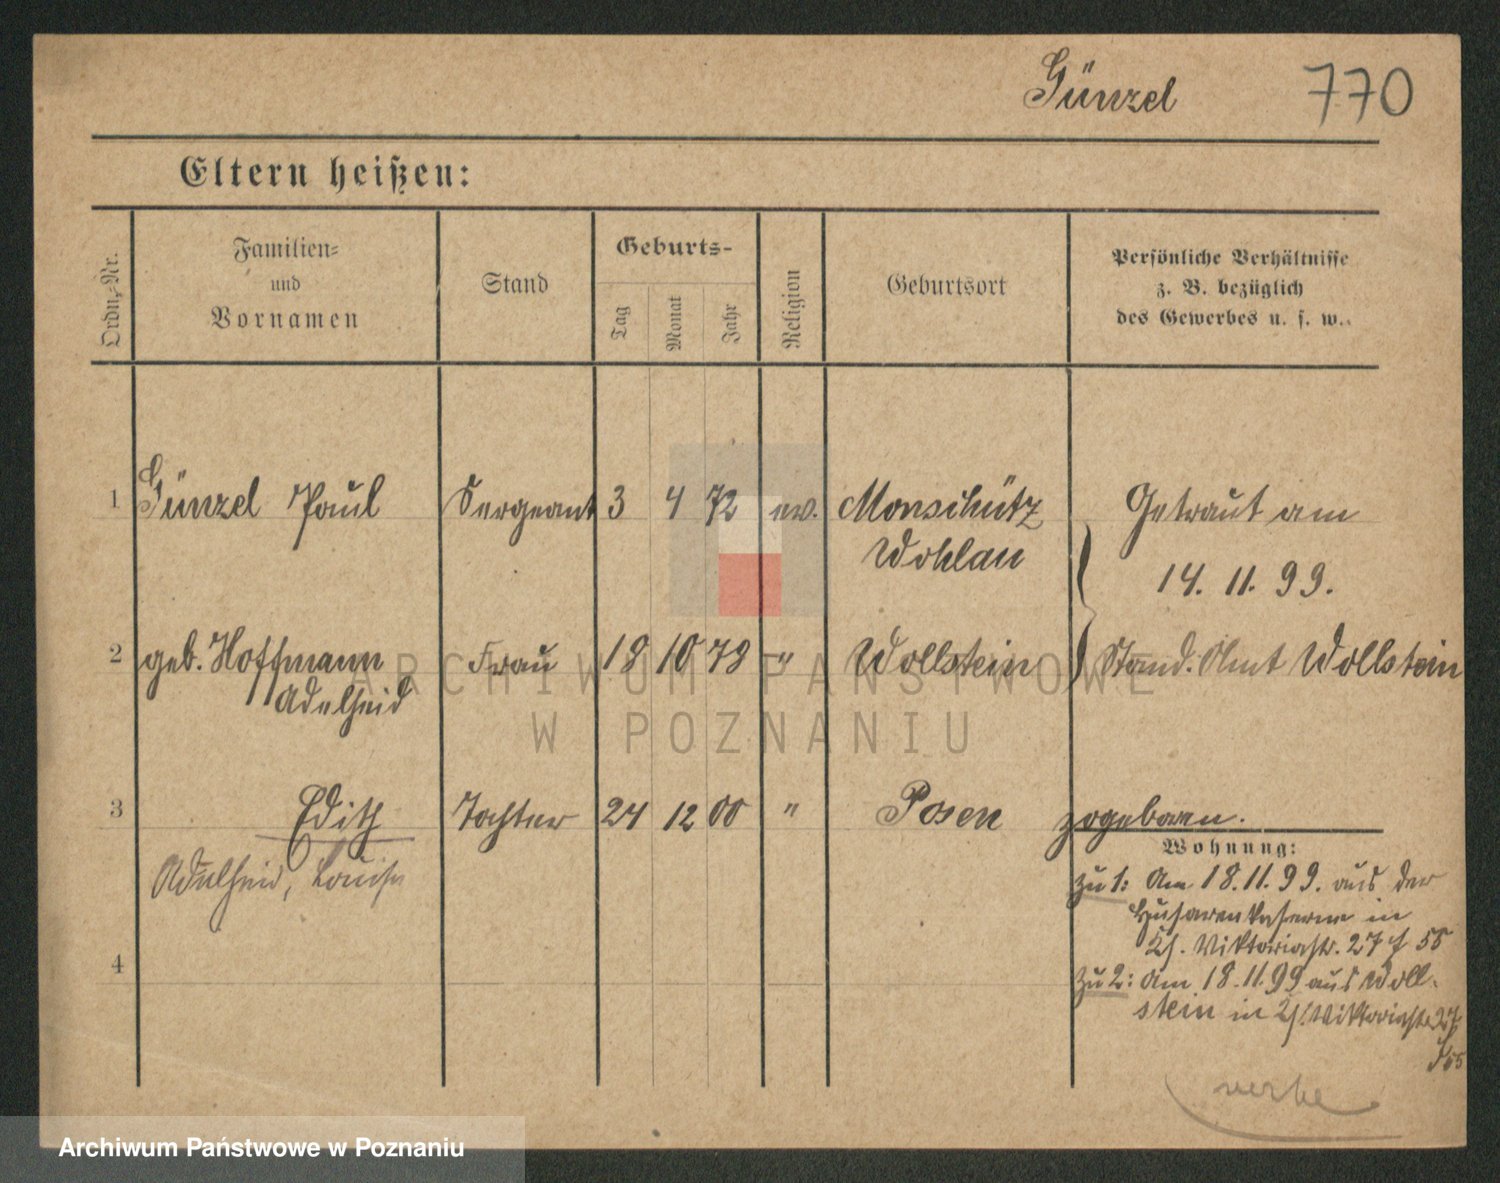 Günzel 770
Eltern heißen:
Ordn.-Nr.
Familien-
und
Vornamen
Stand
Geburts-
Tag
Monat
Jahr
Religion
Geburtsort
Persönliche Verhältnisse
z. B. bezüglich
des Gewerbes u. s. w.
1 Günzel Paul Sergeant 3 4 72 ev. Monschütz Getraut am
Wohlau 14. 11. 99.
2 geb. Hoffmann Frau 18 10 78 " Wollstein Stand. Amt Wollstein
Adelheid
3 Edith Tochter 24 12 00 " Posen zogeboren.
Adelheid, Louise
Wohnung:
zu 1: Am 18. 11. 99. aus der
Husarenkaserne in
Viktoriastr. 27 55
4
zu 2: Am 18. 11. 99 aus Woll-
stein in Viktoriastr 27
55
ARCHIWUM PAŃSTWOWE
W POZNANIU
Archiwum Państwowe w Poznaniu